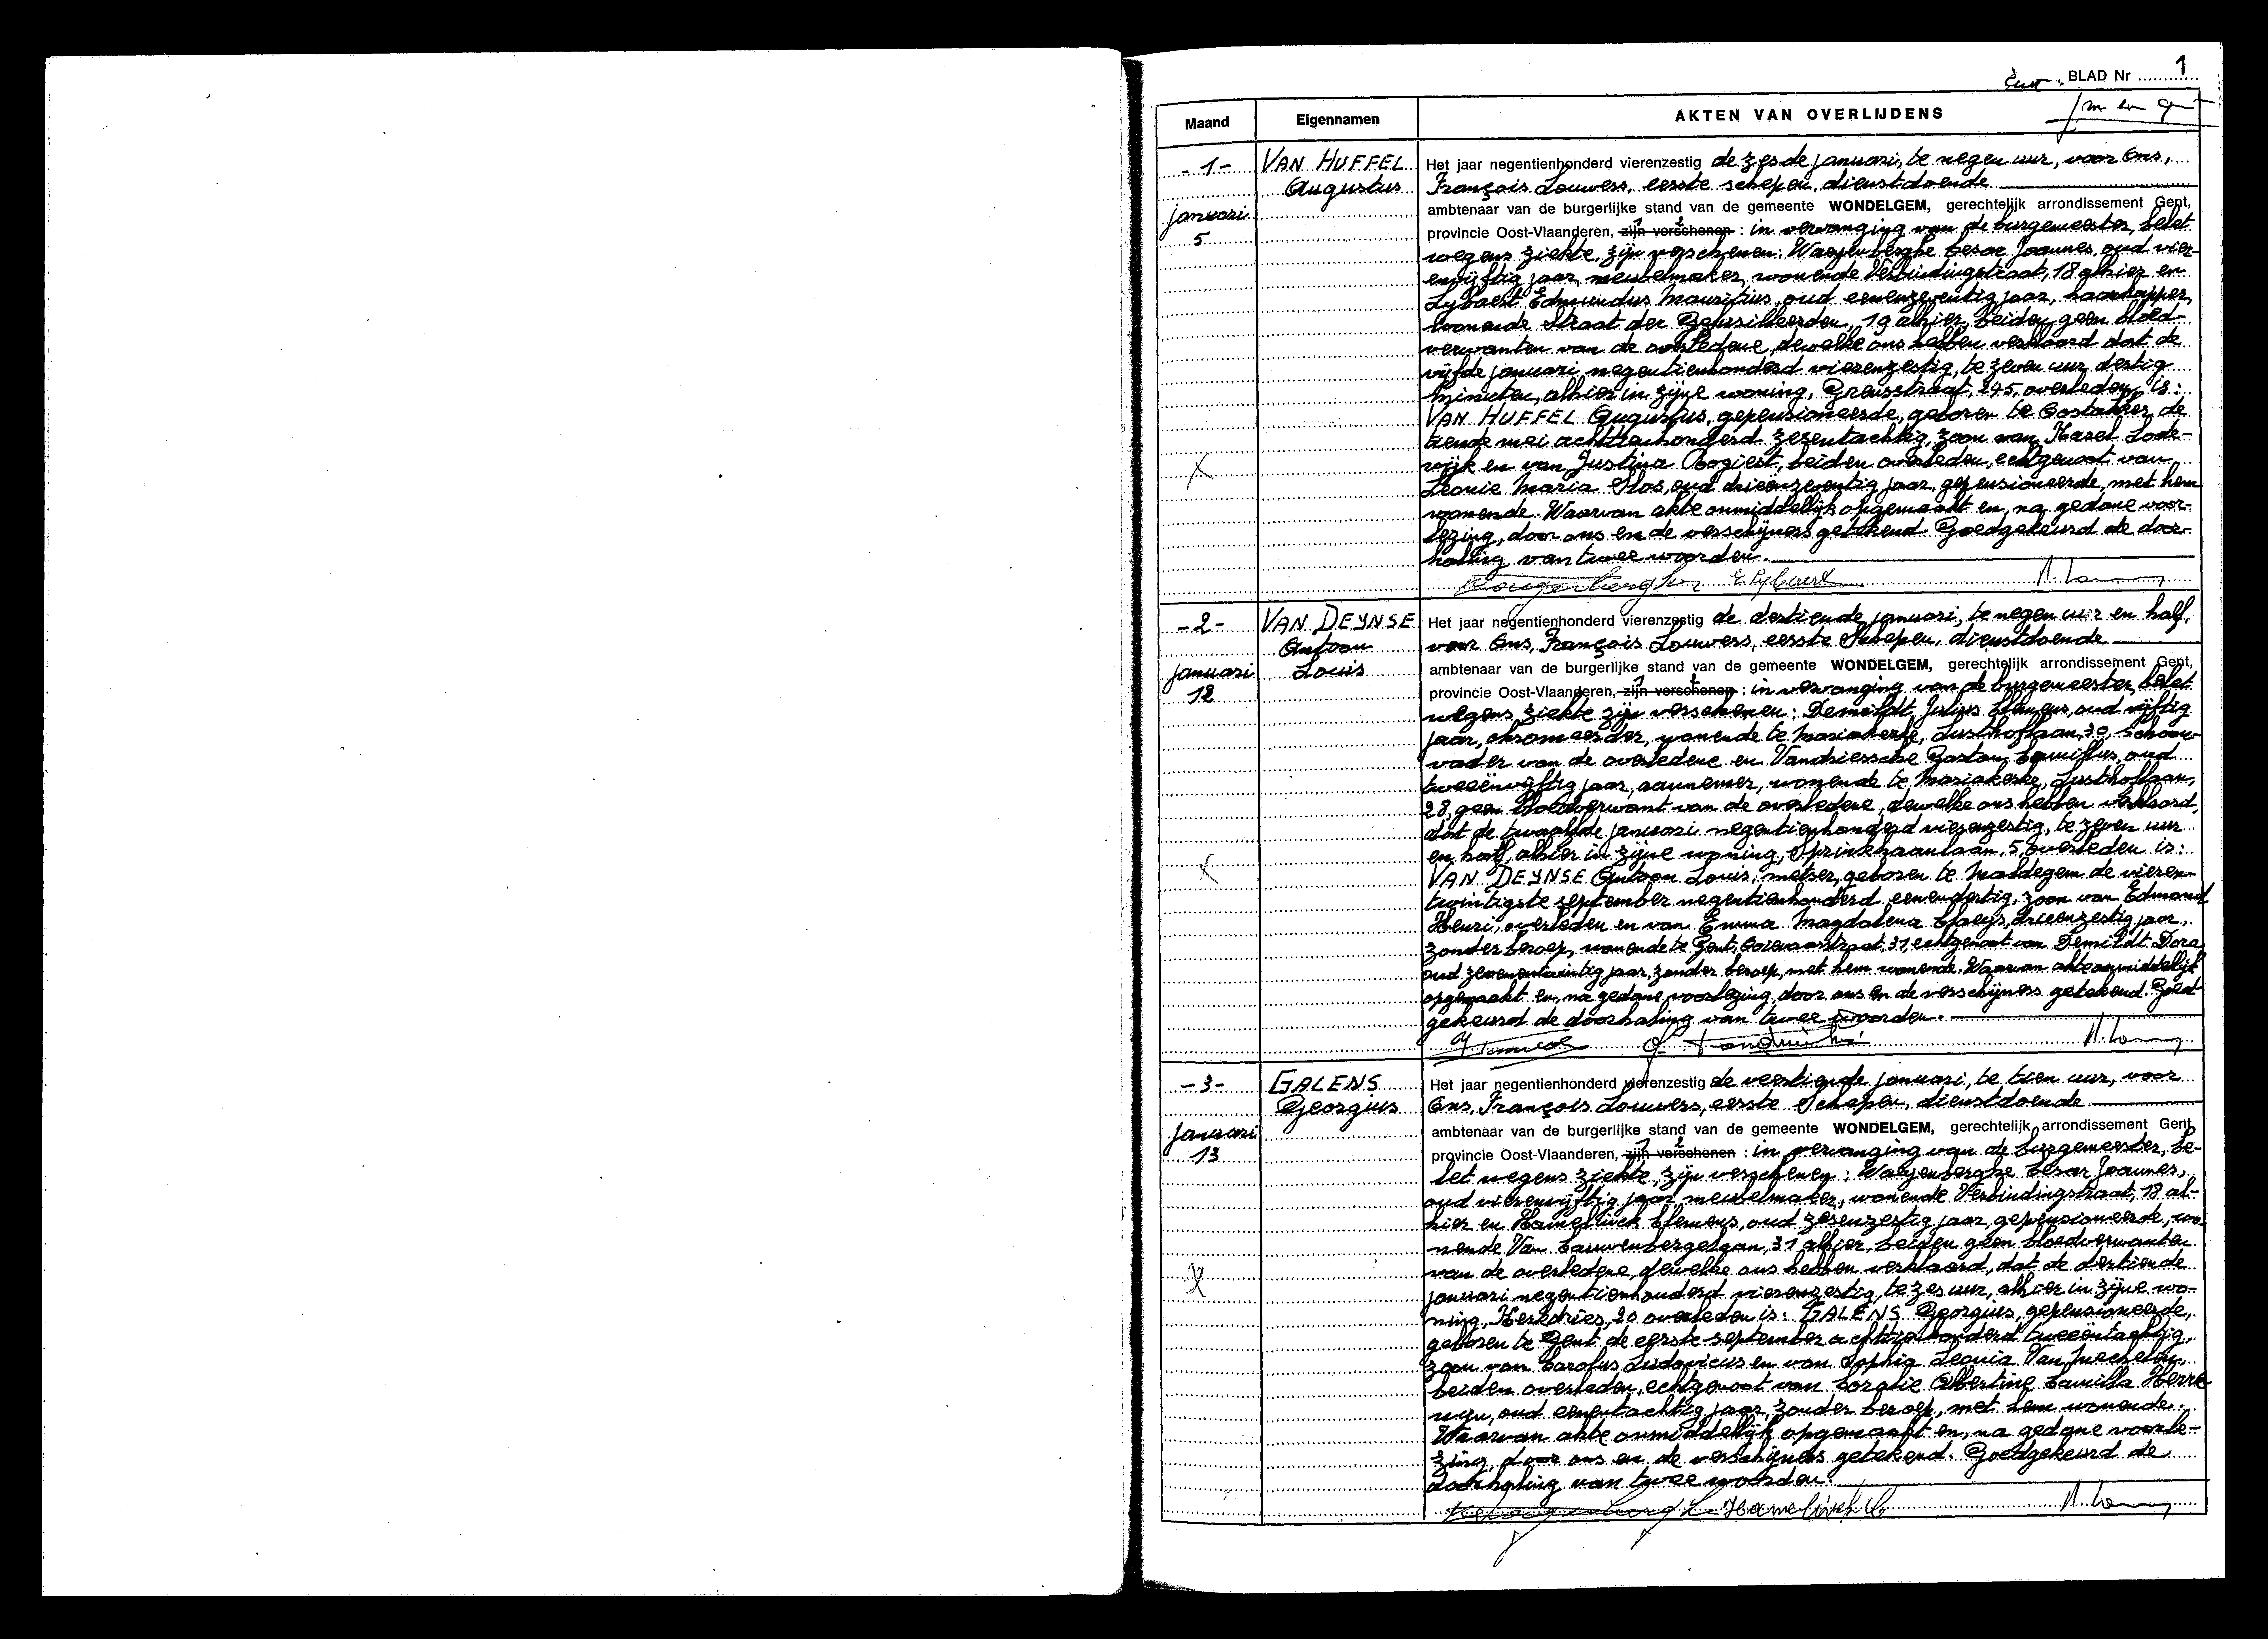 BLAD Nr 1
Maand Eigennamen AKTEN VAN OVERLIJDENS
-1-
januari
5
VAN HUFFEL
Augustus
Het jaar negentienhonderd vierenzestig de zesde januari, te negen uur, voor Ons,
François Louwers, eerste schepen, dienstdoende
ambtenaar van de burgerlijke stand van de gemeente WONDELGEM, gerechtelijk arrondissement Gent,
provincie Oost-Vlaanderen, zijn verschenen : in vervanging van de burgemeester, belet
wegens ziekte, zijn verschenen: Waeyenberghe Cesar Joannes, oud vier-
envijftig jaar, meubelmaker, wonende Verbindingstraat, 18 alhier en
Lybaert Edmundus Mauritius, oud eenenzeventig jaar, haarkapper,
wonende Straat der Gefusilleerden, 19 alhier, beiden geen bloed-
verwanten van de overledene, dewelke ons hebben verklaard dat de
vijfde januari negentienhonderd vierenzestig, te zeven uur dertig
minuten, alhier in zijne woning, Greusstraat, 245, overleden is:
VAN HUFFEL Augustus, gepensioneerde, geboren te Oostakker, de
tiende mei achttienhonderd zesentachtig, zoon van Karel Lode-
wijk en van Justina Rogiest, beiden overleden, echtgenoot van
Leonie Maria Slos, oud drieënzeventig jaar, gepensioneerde, met hem
wonende. Waarvan akte onmiddellijk opgemaakt en, na gedane voor-
lezing, door ons en de verschijners getekend. Goedgekeurd de door-
haling van twee woorden.
E. Lybaert
-2-
januari
12
VAN DEYNSE
Antoon
Louis
Het jaar negentienhonderd vierenzestig de dertiende januari, te negen uur en half,
voor Ons, François Louwers, eerste Schepen, dienstdoende
ambtenaar van de burgerlijke stand van de gemeente WONDELGEM, gerechtelijk arrondissement Gent,
provincie Oost-Vlaanderen, zijn verschenen : in vervanging van de burgemeester, belet
wegens ziekte zijn verschenen: Demildt Julius Clemens, oud vijftig
jaar, chromeerder, wonende te Mariakerke, Lusthoflaan, 30, schoon-
vader van de overledene en Vandriessche Gaston Camillus, oud
tweeënvijftig jaar, aannemer, wonende te Mariakerke, Lusthoflaan,
28, geen bloedverwant van de overledene, dewelke ons hebben verklaard,
dat de twaalfde januari negentienhonderd vierenzestig, te zeven uur
en half, alhier in zijne woning, Sprinkhaanlaan, 5, overleden is:
VAN DEYNSE Antoon Louis, metser, geboren te Maldegem de vieren-
twintigste september negentienhonderd eenendertig, zoon van Edmond
Henri, overleden en van Emma Magdalena Claeys, drieenzestig jaar,
zonder beroep, wonende te Gent, Ooievaarstraat, 31, echtgenoot van Demildt Dora,
oud zevenentwintig jaar, zonder beroep, met hem wonende. Waarvan akte onmiddellijk
opgemaakt en, na gedane voorlezing, door ons en de verschijners getekend. Goed-
gekeurd de doorhaling van twee woorden.
-3-
januari
13
GALENS
Georgius
Het jaar negentienhonderd vierenzestig de veertiende januari, te tien uur, voor
Ons, François Louwers, eerste Schepen, dienstdoende
ambtenaar van de burgerlijke stand van de gemeente WONDELGEM, gerechtelijk arrondissement Gent,
provincie Oost-Vlaanderen, zijn verschenen : in vervanging van de burgemeester, be-
let wegens ziekte, zijn verschenen : Waeyenberghe Cesar Joannes,
oud vierenvijftig jaar, meubelmaker, wonende Verbindingstraat, 18 al-
hier en Hamelinck Clemens, oud zesenzestig jaar, gepensioneerde, wo-
nende Van Cauwenbergelaan, 31 alhier, beiden geen bloedverwanten
van de overledene, dewelke ons hebben verklaard, dat de dertiende
januari negentienhonderd vierenzestig, te zes uur, alhier in zijne wo-
ning, Kerkdries, 20 overleden is: GALENS Georgius, gepensioneerde,
geboren te Gent de eerste september achttienhonderd tweeëntachtig,
zoon van Carolus Ludovicus en van Sophia Leonia Van Mechelen,
beiden overleden, echtgenoot van Coralie Albertine Camilla Herre-
wyn, oud eenentachtig jaar, zonder beroep, met hem wonende.
Waarvan akte onmiddellijk opgemaakt en, na gedane voorle-
zing, door ons en de verschijners getekend. Goedgekeurd de
doorhaling van twee woorden.
Hamelinck